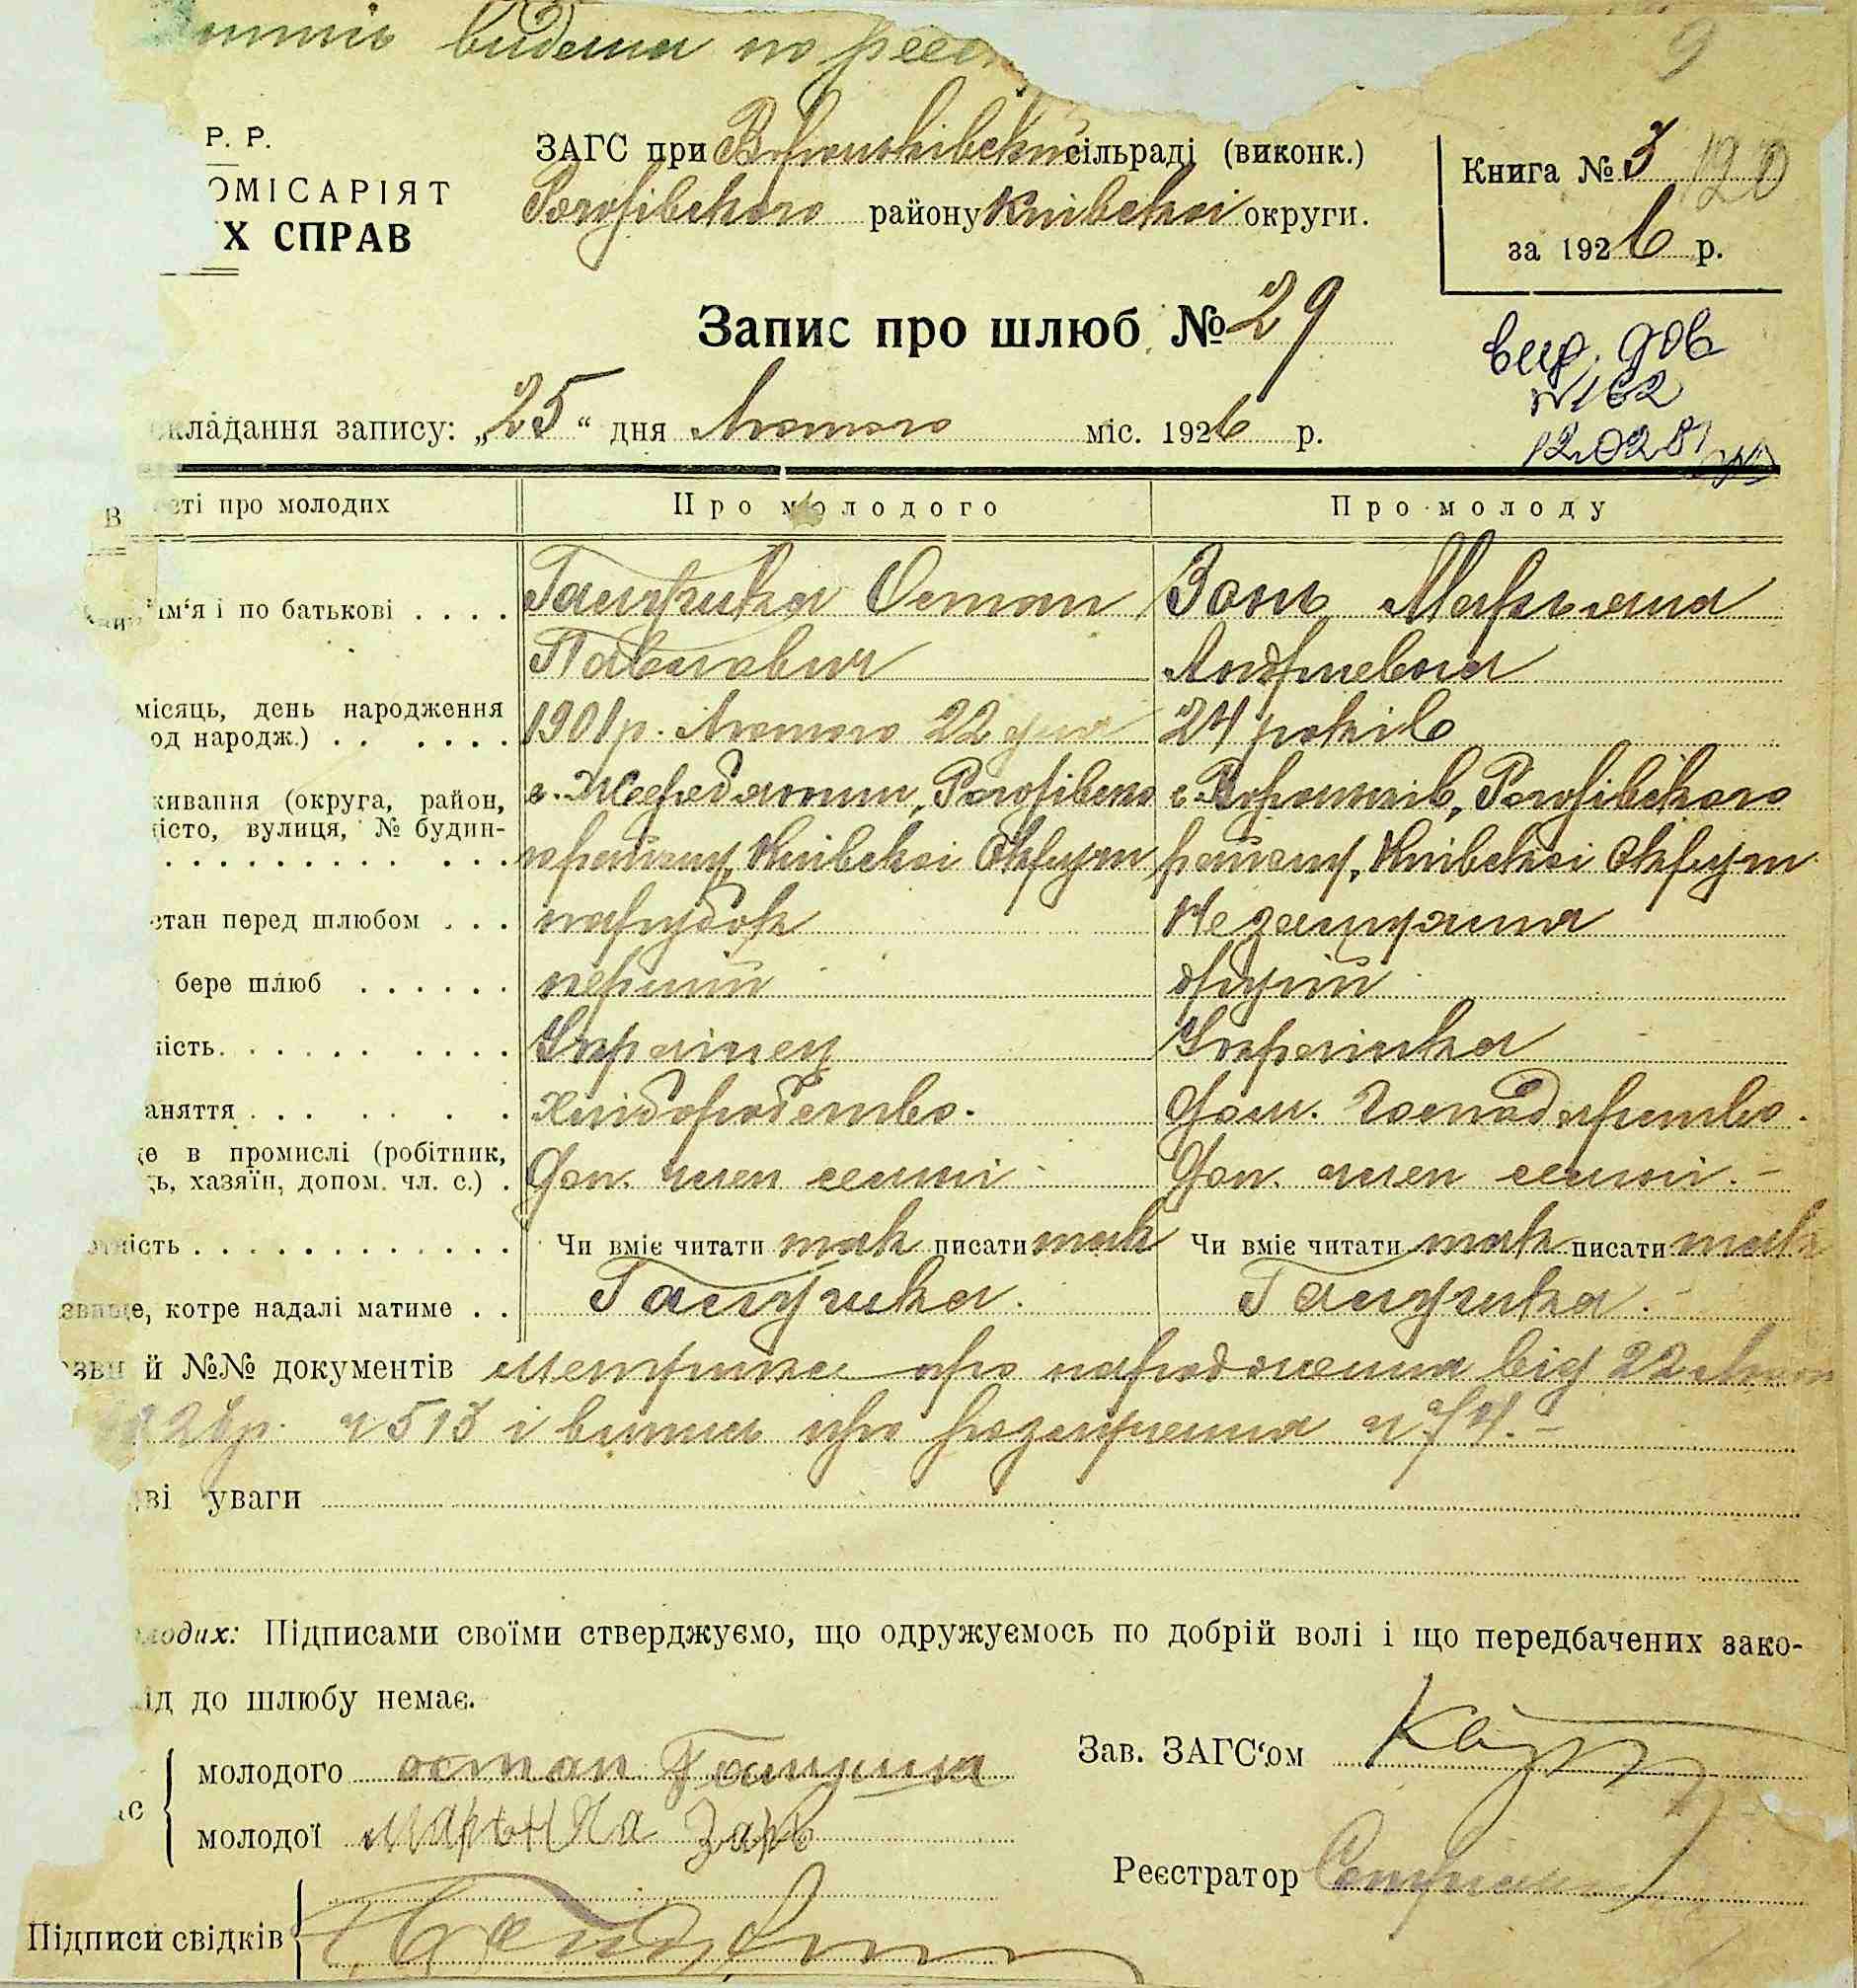 видана по реєс
9
Р. Р.
ОМІСАРІЯТ
Х СПРАВ
ЗАГС при Вороньківській сільраді (виконк.)
Рогозівського району Київської округи.
Книга № 3 120
за 1926 р.
Запис про шлюб № 29
вид. дов
№ 162
12.02.81
складання запису: „25“ дня Лютого міс. 1926 р.
В сті про молодих
Про молодого
Про молоду
ім‘я і по батькові . . . .
Остап
Мар'яна
Павлович
Андріевна
місяць, день народження
од народж.) . . . . . .
1901 р. Лютого 22 дня
24 років
живання (округа, район,
місто, вулиця, № будин-
. . . . . . . . . . . . .
с. Жеребятин, Рогозівсько
го району, Київської Округи
с. Вороньків, Рогозівського
району, Київської Округи
стан перед шлюбом . . .
парубок
Незамужня
бере шлюб . . . . . .
перший
другий
ність. . . . . . . . . .
Українец
Українка
аняття . . . . . . .
Хліборобство.
Дом. Господарство.
це в промислі (робітник,
ць, хазяїн, допом. чл. с.) .
Доп. член семьі
Доп. член семьі. –
ність . . . . . . . . . . . .
Чи вміє читати так писати так
Чи вміє читати так писати так
звище, котре надалі матиме . .
й №№ документів метрика про народження від 22
р. № 513 і випис про розлучення № 74. –
ві уваги
молодих: Підписами своїми стверджуємо, що одружуємось по добрій волі і що передбачених зако-
ід до шлюбу немає.
Зав. ЗАГС‘ом
молодого остап
молодої
Реєстратор
Підписи свідків